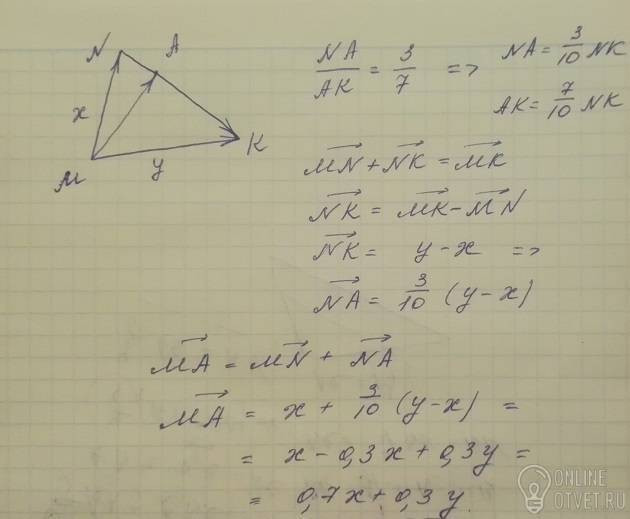 N A
x
M y K
NA/AK = 3/7 => NA = 3/10 NK
AK = 7/10 NK
MN + NK = MK
NK = MK - MN
NK = y - x =>
NA = 3/10 (y - x)
MA = MN + NA
MA = x + 3/10 (y - x) =
= x - 0,3x + 0,3y =
= 0,7x + 0,3y
ONLINE
OTVET.RU